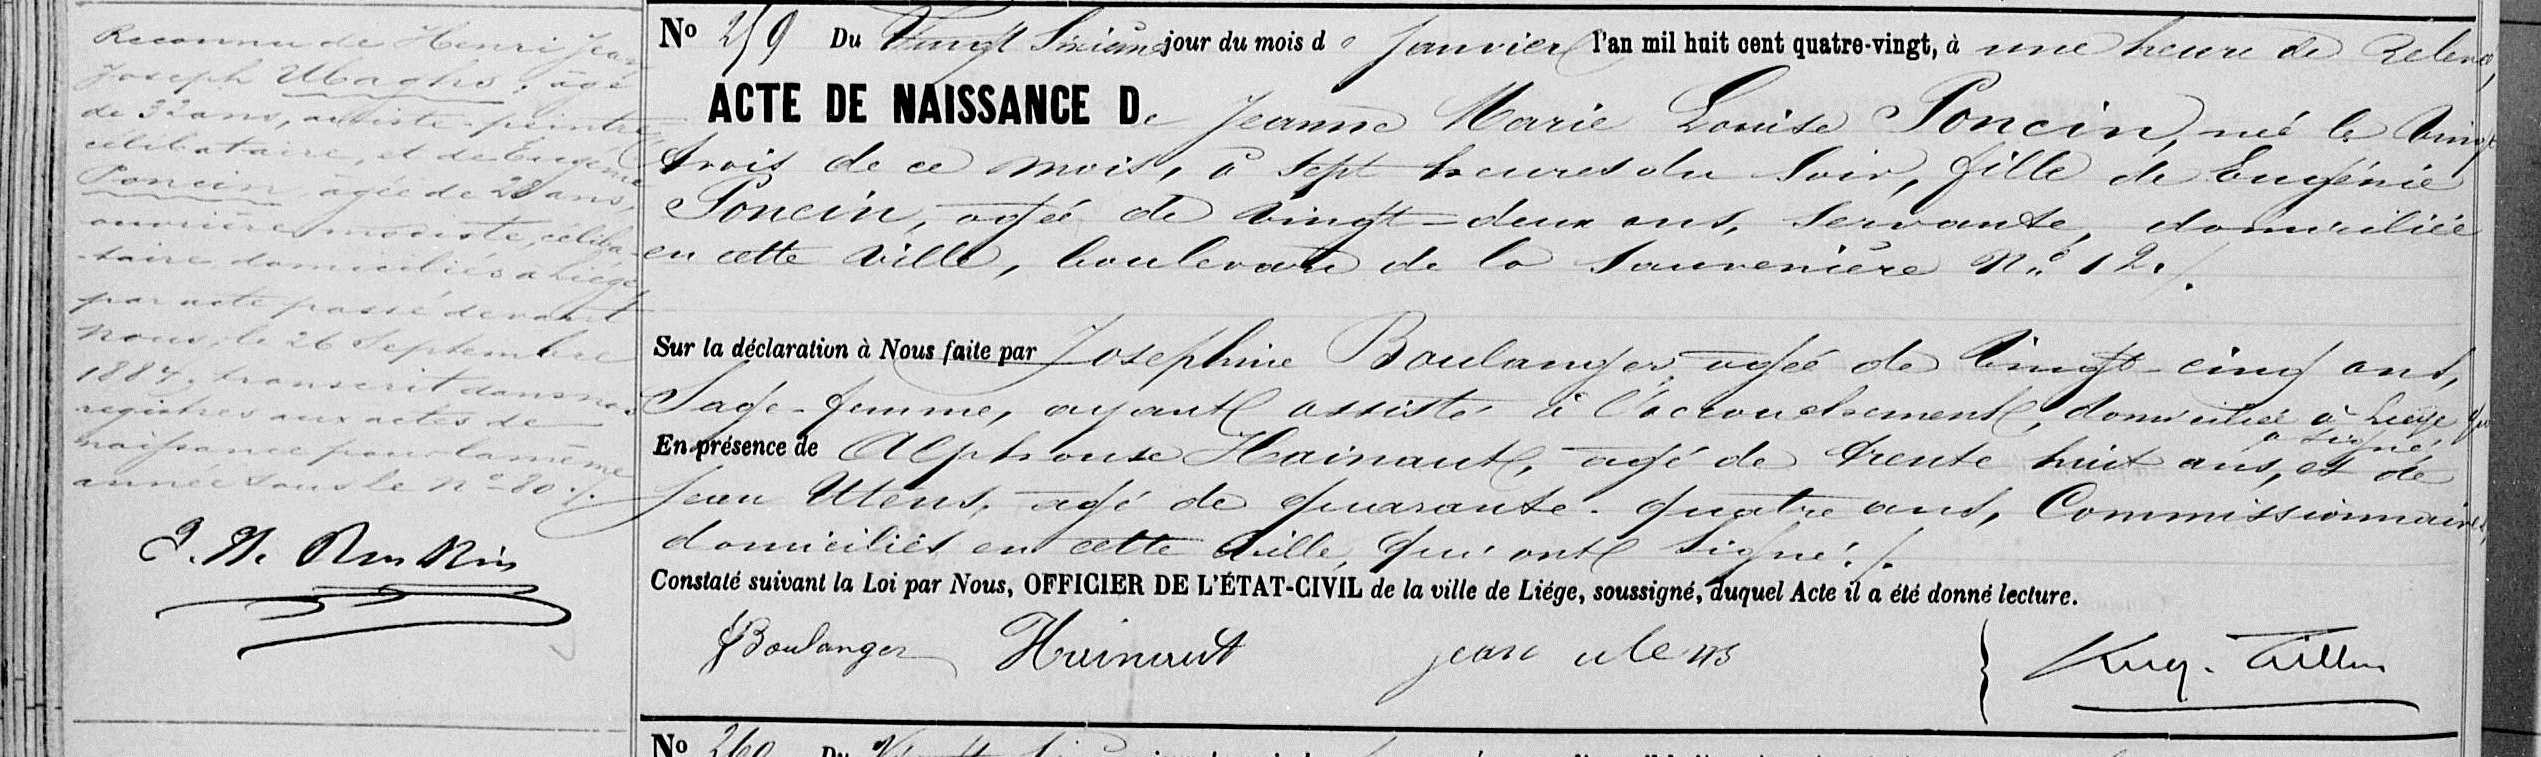 Reconnu de Henri Jean
Joseph Maghs, âgé
de 32 ans, artiste-peintre
célibataire, et de Eugénie
Poncin âgée de 28 ans,
ouvrière modiste, céliba-
taire domiciliés à Liège
par acte passé devant
Nous, le 26 Septembre
1887, transcrit dans nos
registres aux actes de
naissance pour la même
année sous le No 80 ./.
No 259 Du Vingt Sixième jour du mois de Janvier l'an mil huit cent quatre-vingt, à une heure de relevée,
ACTE DE NAISSANCE De Jeanne Marie Louise Poncin, née le Vingt
trois de ce mois, à sept heures du soir, fille de Eugénie
Poncin, agée de vingt-deux ans, servante, domiciliée
en cette ville, boulevard de la Sauvenière No 12 ./.
Sur la déclaration à Nous faite par Joséphine Boulanger, agée de Vingt-cinq ans,
Sage-femme, ayant assisté à l'accouchement, domiciliée à Liège, qui
a signé,
En présence de Alphonse Hainaut, agé de trente huit ans, et de
Jean Utens, agé de quarante-quatre ans, Commissionnaires,
domiciliés en cette ville, qui ont signé ./.
Constaté suivant la Loi par Nous, OFFICIER DE L'ÉTAT-CIVIL de la ville de Liége, soussigné, duquel Acte il a été donné lecture.
J Boulanger Hainaut jean utens
No 260 Du